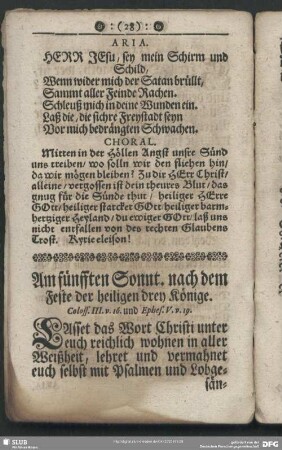 :(28):
ARIA.
HERR JEsu, sey mein Schirm und
Schild,
Wenn wider mich der Satan brüllt,
Sammt aller Feinde Rachen.
Schleuß mich in deine Wunden ein.
Laß die, die sichre Freystadt seyn
Vor mich bedrängten Schwachen.
CHORAL.
Mitten in der Höllen Angst unsre Sünd
uns treiben/ wo solln wir den fliehen hin/
da wir mögen bleiben? Zu dir HErr Christ/
alleine/ vergossen ist dein theures Blut/ das
gnug für die Sünde thut/ heiliger HErre
GOtt/ heiliger starcker GOtt/ heiliger barm-
hertziger Heyland/ du ewiger GOtt/ laß uns
nicht entfallen von des rechten Glaubens
Trost. Kyrie eleison!
Am fünfften Sonnt. nach dem
Feste der heiligen drey Könige.
Coloss. III. v. 16. und Ephes. V. v. 19.
LAsset das Wort Christi unter
euch reichlich wohnen in aller
Weißheit, lehret und vermahnet
euch selbst mit Psalmen und Lobge-
sän-
SLUB
DFG